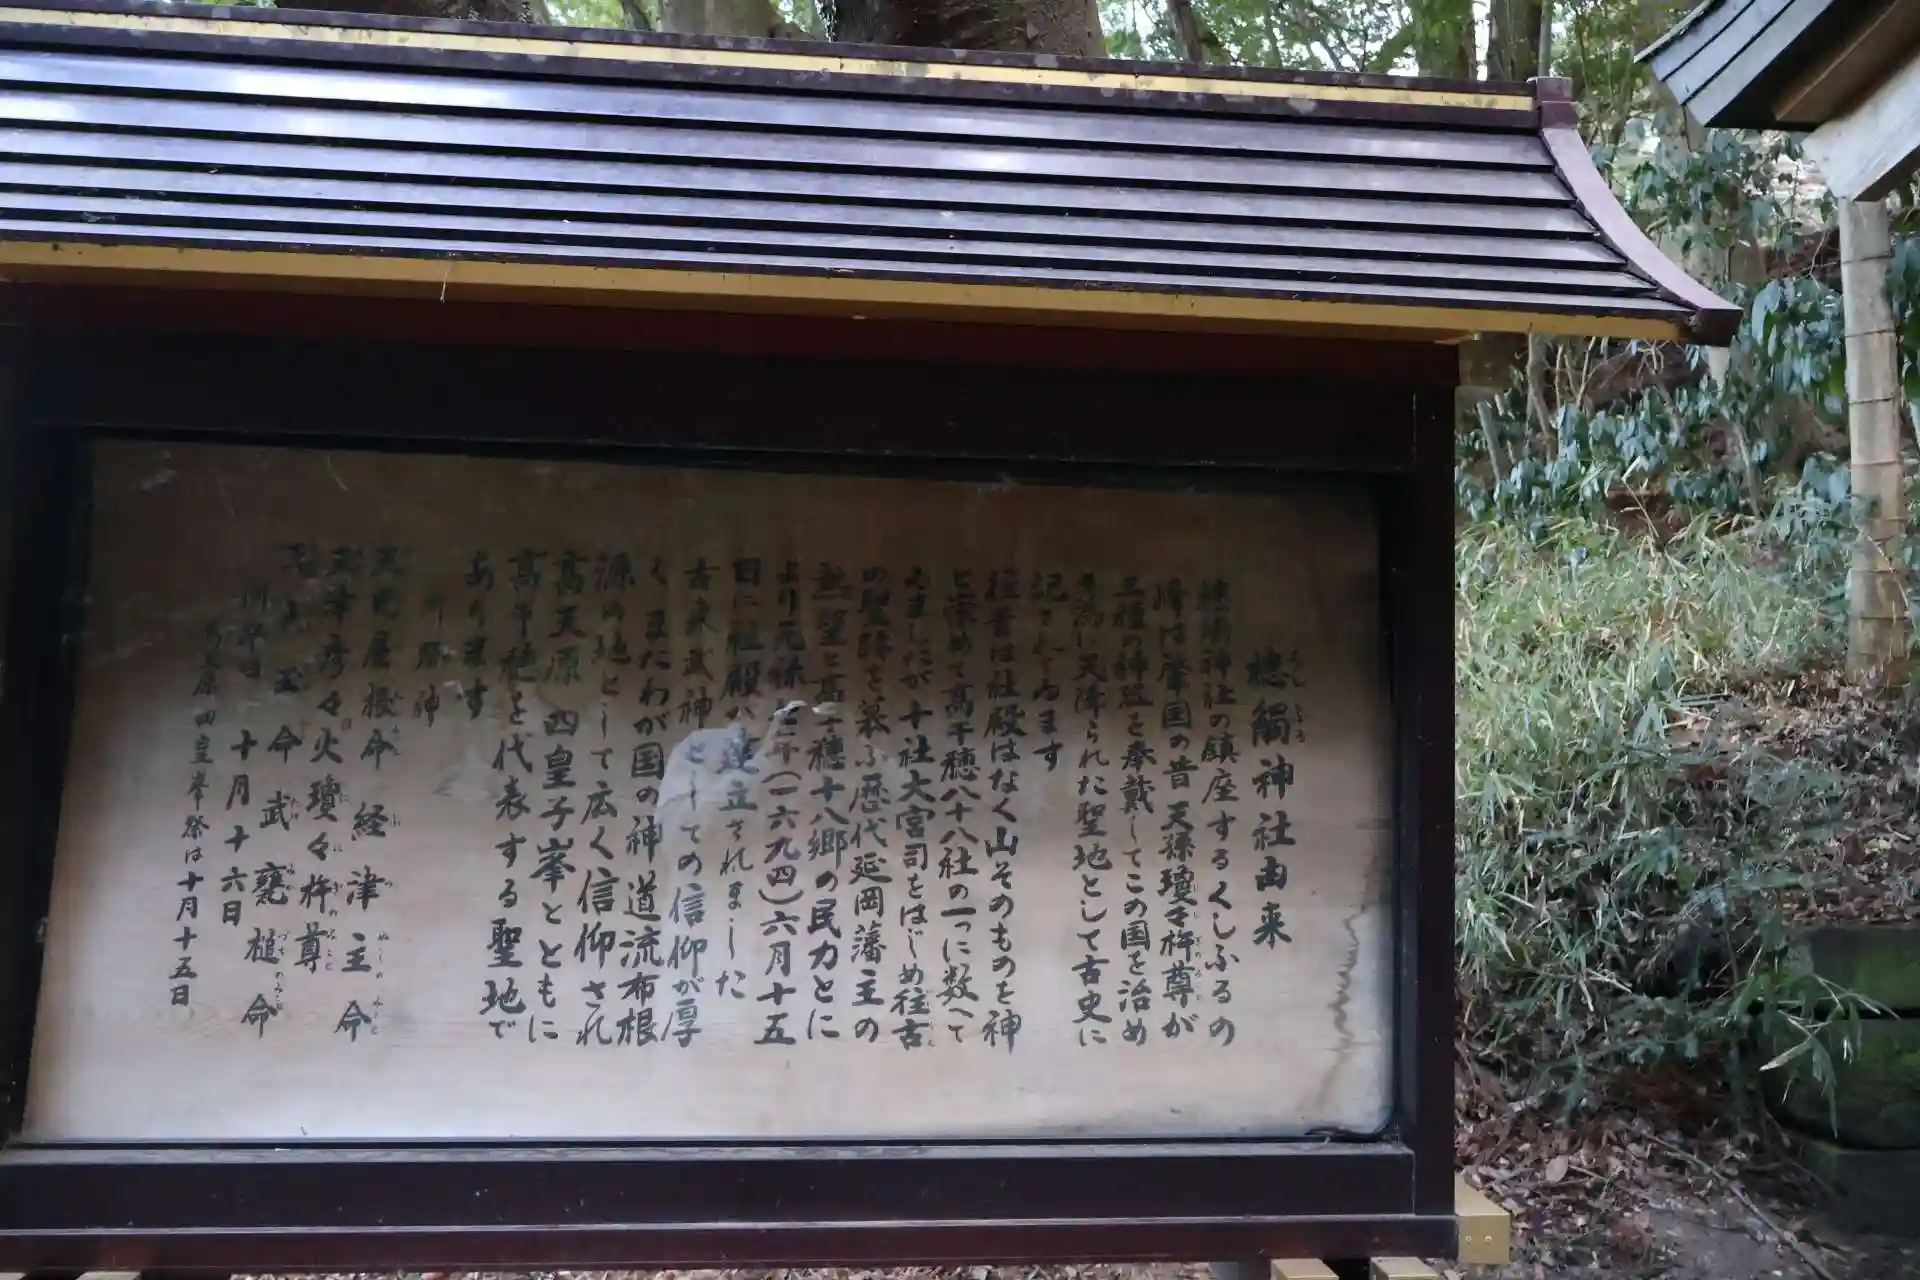 槵觸神社由来
槵觸神社の鎮座するくしふるの
峰は肇国の昔天孫瓊々杵尊が
三種の神器を奉戴してこの国を治め
に天降られた聖地として古史に
記されてゐます
往昔は社殿はなく山そのものを神
と崇めて高千穂八十八社の一つに数へて
ゐましたが十社大宮司をはじめ往古
の聖跡を慕ふ歴代延岡藩主の
熱望と高千穂十八郷の民力とに
より元禄七年(一六九四)六月十五
日に社殿が建立されました
古来武神としての信仰が厚
くまたわが国の神道流布根
源の地として広く信仰され
高天原 四皇子峯とともに
高千穂を代表する聖地で
あります
御祭神
天児屋根命 経津主命
天津彦々火瓊々杵尊
天太玉命 武甕槌命
例祭日 十月十六日
高天原四皇峯祭は十月十五日